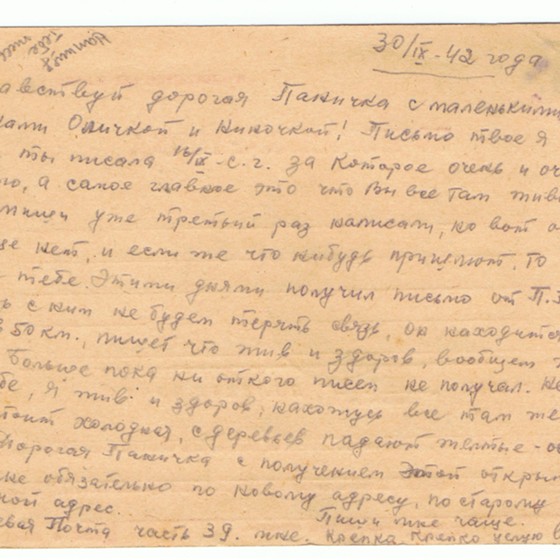 30/IX-42 года
Напишу
тебе
авствуй дорогая Паничка с маленькими
ками Оничкой и Ниночкой! Письмо твое я
ты писала 16/IX-с.г. за которое очень и оч
ю, а самое главное это что Вы все там живы
миши уже третьий раз написали, но вот о
ще нет, и если же что нибудь пришлют. То
тебе. Этими днями получил письмо от П.
ь с ним не будем терять связь, он находится
в 50 км., пишет что жив и здоров, вообщем
Больше пока ни откого писем не получал.
бе, я жив и здоров, нахожусь все там же
стоит холодная, с деревьев падают желтые
Дорогая Паничка с получением этой откры
не обязательно по новому адресу, по старому
ной адрес. Пиши мне чаще.
евая Почта часть 39. мне. Крепко Крепко целую в